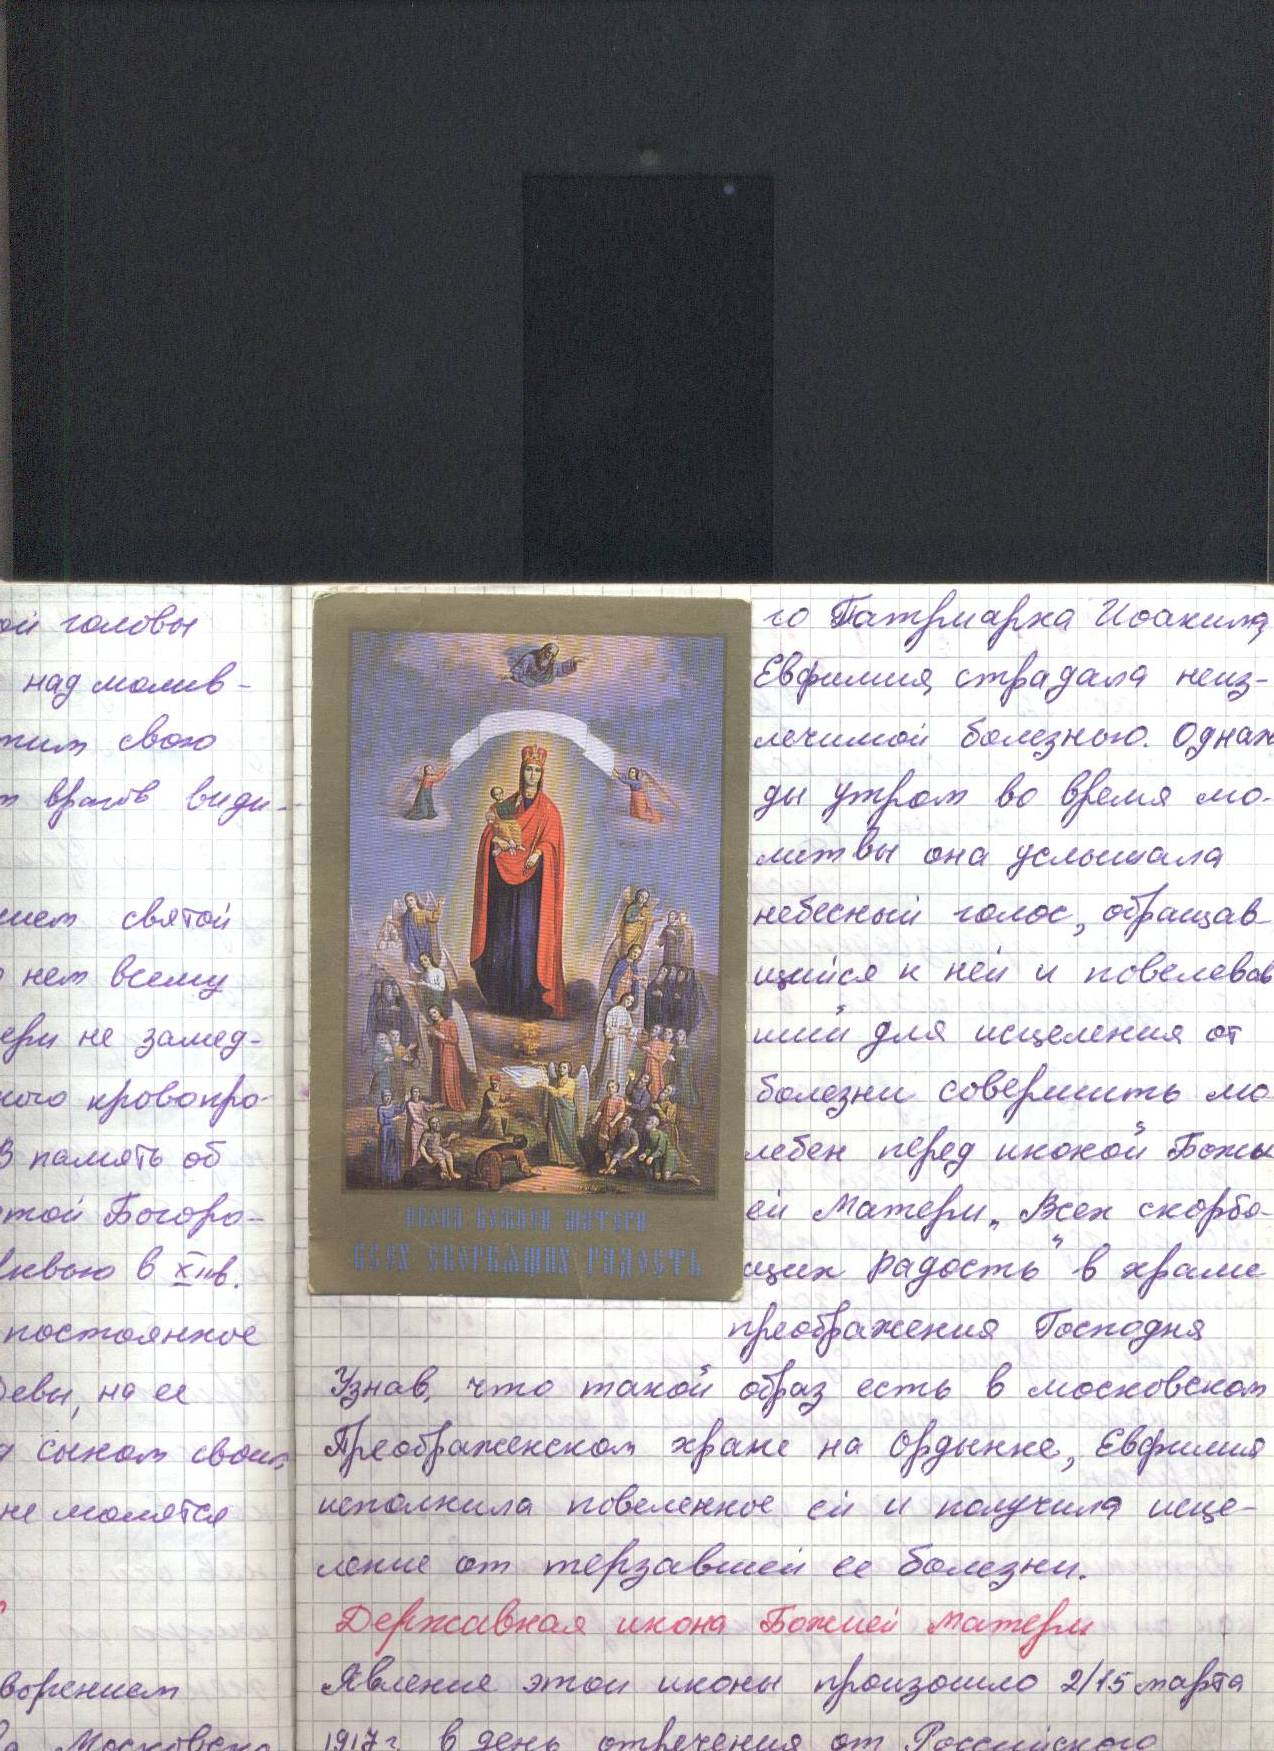 ой головы
над молив-
тим свою
врагов види-
святой
нем всему
ери не замед-
ного кровопро-
В память об
той Богоро-
в XII в.
постоянное
Девы, на ее
сыном своим
не молятся
ворением
Московско
ИКОНА БОЖИЕЙ МАТЕРИ
ВСЕХ СКОРБЯЩИХ РАДОСТЬ
го Патриарха Иоакима,
Евфимия, страдала неиз-
лечимой болезнью. Однаж
ды утром во время мо-
литвы она услышала
небесный голос, обращав
щийся к ней и повелевав
ший для исцеления от
болезни совершить мо
лебен перед иконой Божи
ей Матери „Всех скорбя-
щих радость" в храме
преображения Господня
Узнав, что такой образ есть в московском
Преображенском храме на Ордынке, Евфимия
исполнила повеленное ей и получила исце-
ление от терзавшей ее болезни.
Державная икона Божией Матери
Явление этой иконы произошло 2/15 марта
1917 г. в день отречения от Российского